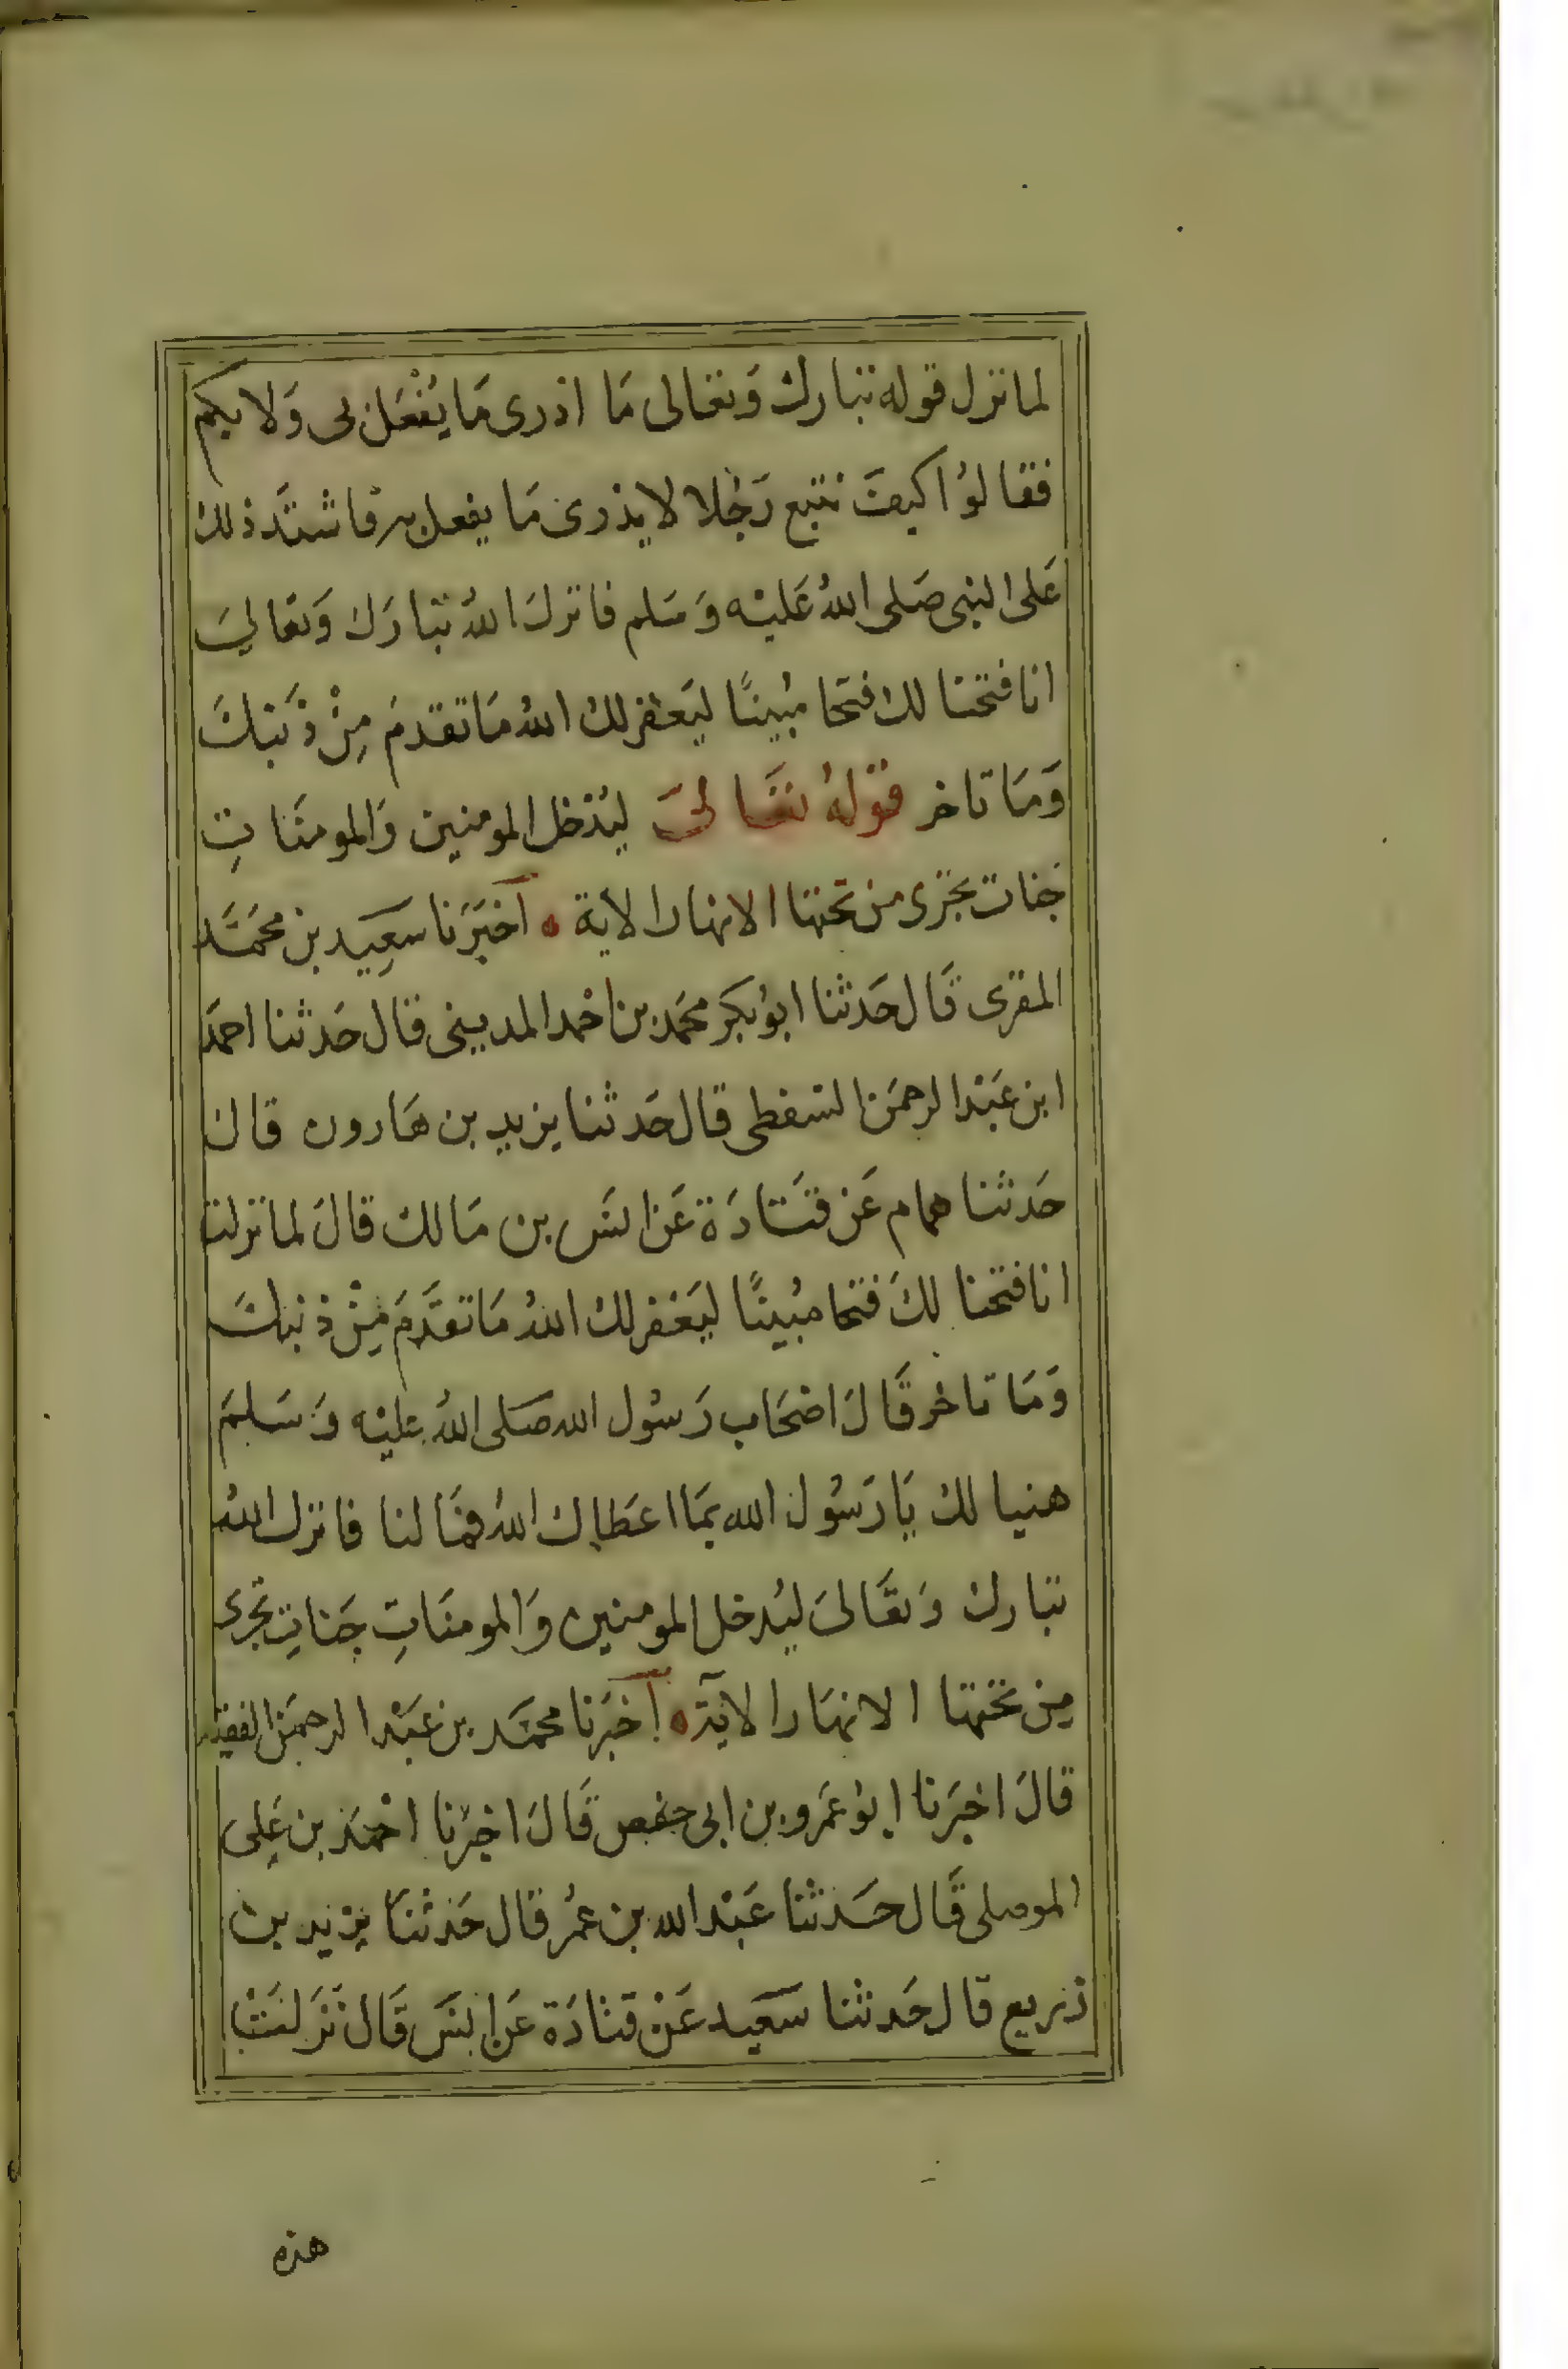 لما نزل قوله تبارك وَتعَالى مَا ادْرى مَا يُفْعَل بى وَلا بكم
فقالوُا كيفَ نتبع رَجُلا لا يدْرىْ مَا يفعل به فاشتدَّ ذلك
عَلى النبى صَلى اللهُ عَليْه وَسَلم فانزلَ اللهُ تبَارَك وَتعَالىَ
انا فتحنا لك فتحَا مُبينًا ليَغفر لك اللهُ مَا تقدمَ مِنْ ذَنبكَ
وَمَا تاخر قوْلهُ تعَالىَ ليُدْخل المومنين وَالمومنَاتِ
جَنات تجْرى من تحتهَا الانهار الاية ٥ اَخبَرَنا سَعِيد بن محمَّد
المقرى قَال حَدثنا ابوُبكر محمَد بن احْمد المدينى قال حَدثنا احمَد
ابن عَبْد الرحمَن السَقطى قال حَدثنا يزيد بن هَارون قال
حَدثنا همام عَن قتَادَة عَن انسَ بن مَالك قالَ لما نزلت
انا فتحْنا لكَ فتحا مُبينًا ليَغفر لك اللهُ مَا تقدَّمَ مِنْ ذنبكَ
وَمَا تاخر قَالَ اصْحَاب رَسُول الله صَلى اللهُ عليْه وَسَلمَ
هنيا لك يَا رَسُول الله بمَا اعطاك اللهُ فمَا لنا فانزل اللهُ
تبارك وَتعَالىَ ليُدخل المومنين وَالمومنَاتِ جَناتِ تجرى
مِن تحْتهَا الانهَار الايَة ٥ اَخبَرنا محمَّد بن عَبْد الرحمَن الفقيه
قالَ اخبَرَنا ابوُ عَمرو بن ابى حفص قَالَ اخبرْنا احْمَد بن عَلِى
الموصلى قَال حَدثْنا عَبْد الله بن عمُر قال حَدثنَا يزْيد بن
زريع قال حَدثنا سَعَيد عَنْ قتادَة عَن انسَ قَال نَزَلَتْ
هذه